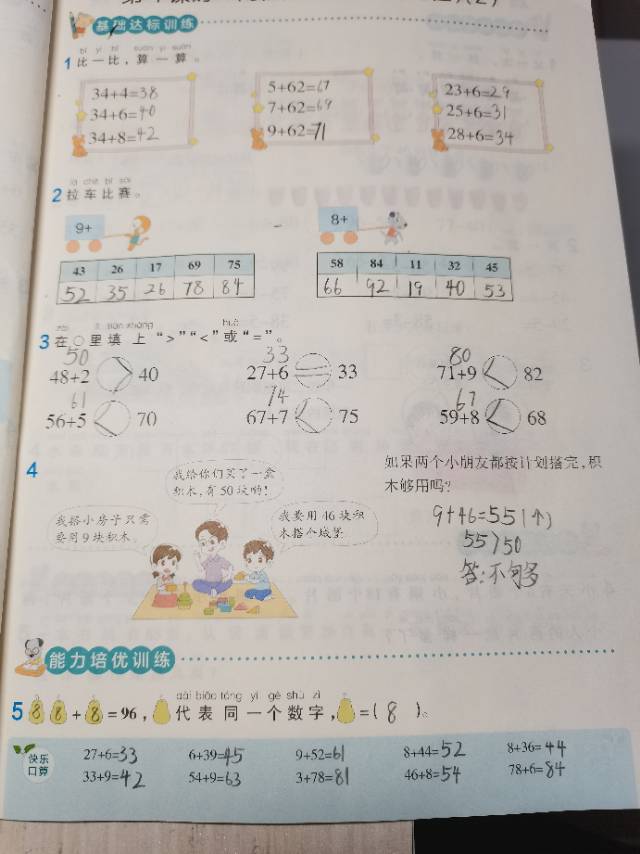 基础达标训练
bǐ yì bǐ suàn yí suàn
1 比一比，算一算。
34+4=38
34+6=40
34+8=42
5+62=67
7+62=69
9+62=71
23+6=29
25+6=31
28+6=34
lā chē bǐ sài
2 拉车比赛。
9+
43 26 17 69 75
52 35 26 78 84
8+
58 84 11 32 45
66 92 19 40 53
zài lǐ tián shàng huò
3 在○里填上“>”“<”或“=”。
50 33 80
48+2 > 40 27+6 = 33 71+9 < 82
61 74 67
56+5 < 70 67+7 < 75 59+8 < 68
4
我给你们买了一盒
积木，有50块哟！
我搭小房子只需
要用9块积木。
我要用46块积
木搭个城堡。
如果两个小朋友都按计划搭完，积
木够用吗？
9+46=55(个)
55>50
答：不够
能力培优训练
dài biǎo tóng yí gè shù zì
5 88+8=96，代表同一个数字，=(8)。
快乐口算
27+6=33 6+39=45 9+52=61 8+44=52 8+36=44
33+9=42 54+9=63 3+78=81 46+8=54 78+6=84